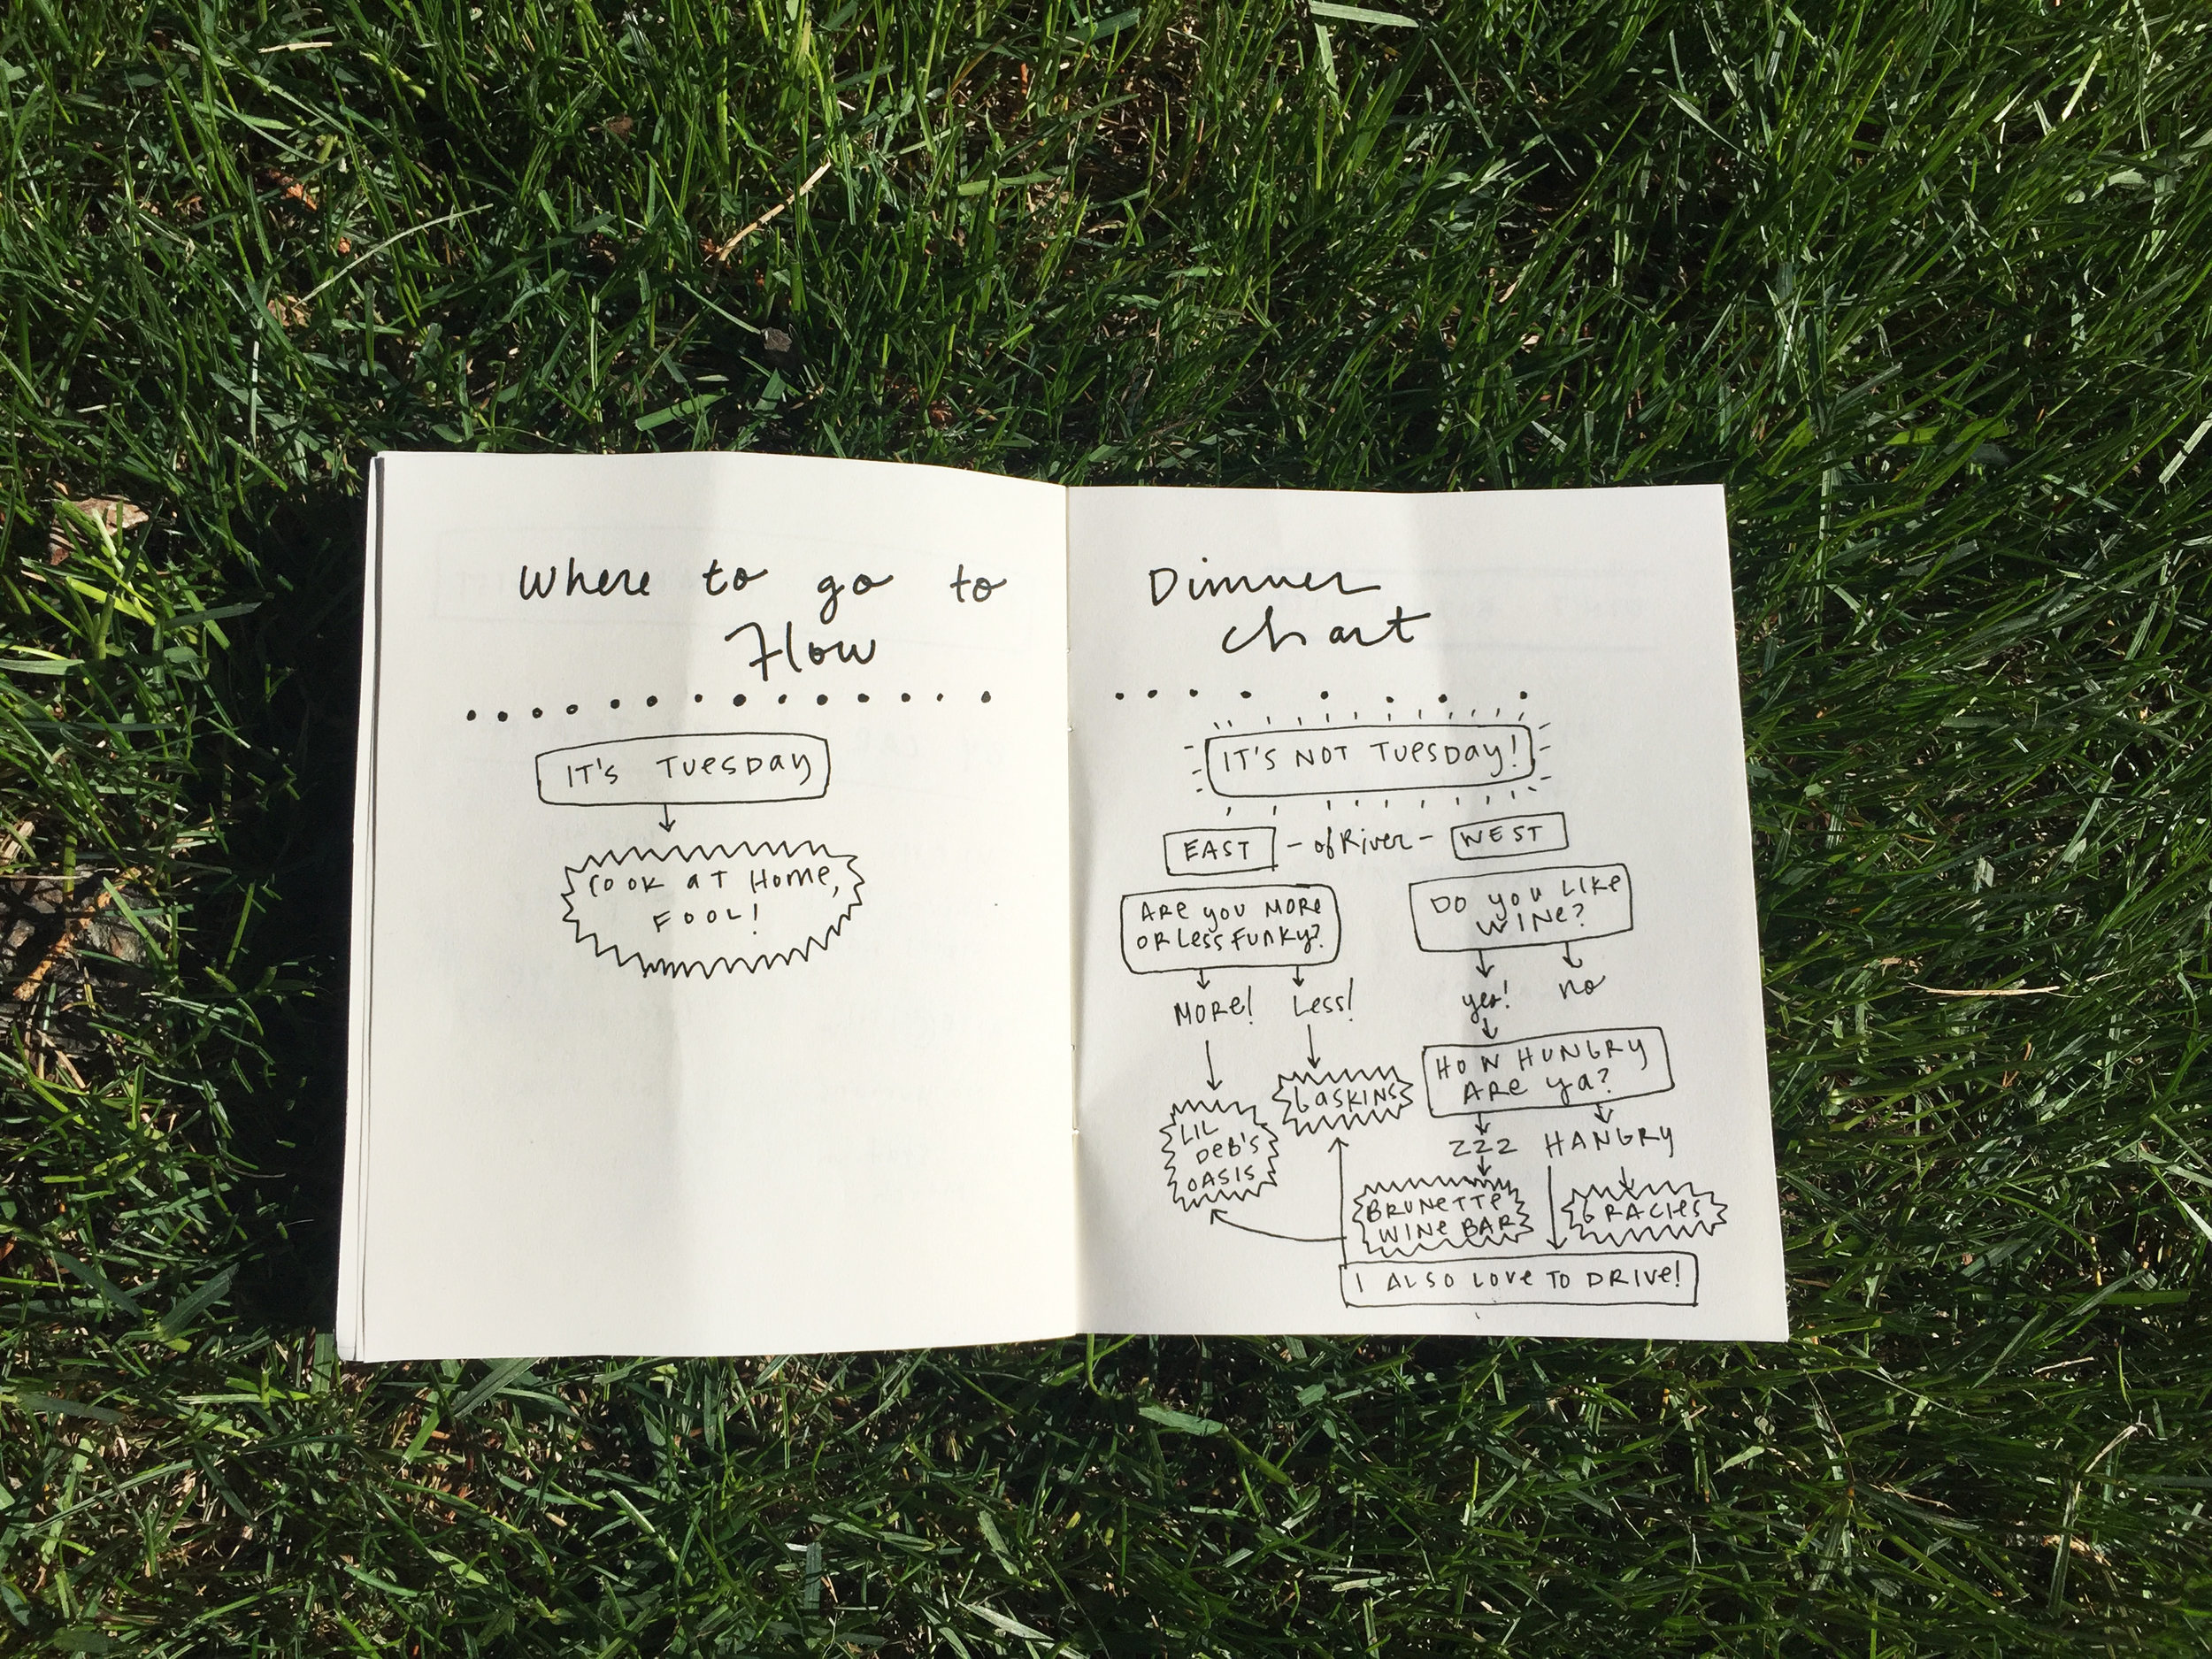 Where to go to Dinner
Flow chart
IT'S TUESDAY
COOK AT HOME,
FOOL!
IT'S NOT TUESDAY!
EAST - of River - WEST
ARE YOU MORE
OR LESS FUNKY?
MORE! LESS!
LIL
DEB'S
OASIS
GASKINS
DO YOU LIKE
WINE?
yes! no
HOW HUNGRY
ARE YA?
ZZZ HANGRY
BRUNETTE
WINE BAR
GRACIES
I ALSO LOVE TO DRIVE!